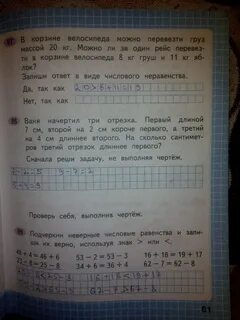 В корзине велосипеда можно перевезти груз
массой 20 кг. Можно ли за один рейс перевез-
ти в корзине велосипеда 8 кг груш и 11 кг яб-
лок?
Запиши ответ в виде числового неравенства.
Да, так как 20>8+11=19
Нет, так как
Ваня начертил три отрезка. Первый длиной
7 см, второй на 2 см короче первого, а третий
на 4 см длиннее второго. На сколько сантимет-
ров третий отрезок длиннее первого?
Сначала реши задачу, не выполняя чертёж.
7-2=5
Проверь себя, выполнив чертёж.
Подчеркни неверные числовые неравенства и запи-
ши их верно, используя знак > или <.
48 + 4 = 46 + 6 53 − 2 = 53 − 3 16 + 18 = 19 + 17
25 − 8 34 + 6 = 36 + 4 62 − 7 = 62 − 8
61